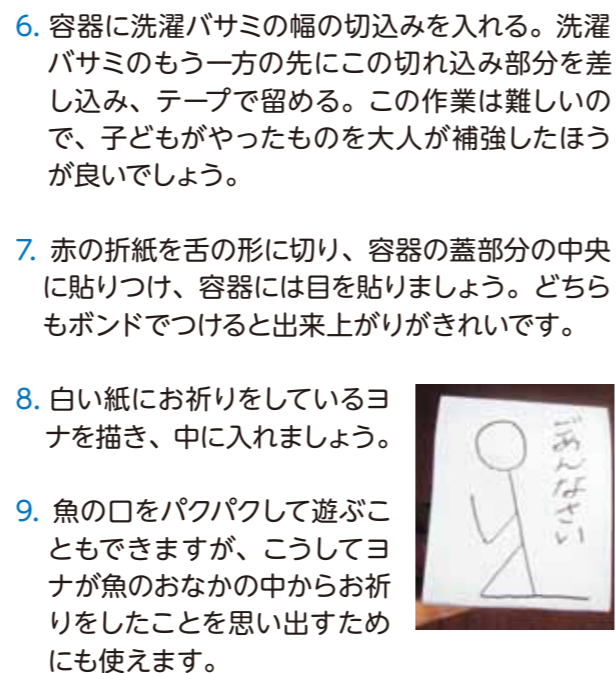 6. 容器に洗濯バサミの幅の切込みを入れる。洗濯
バサミのもう一方の先にこの切れ込み部分を差
し込み、テープで留める。この作業は難しいの
で、子どもがやったものを大人が補強したほう
が良いでしょう。
7. 赤の折紙を舌の形に切り、容器の蓋部分の中央
に貼りつけ、容器には目を貼りましょう。どちら
もボンドでつけると出来上がりがきれいです。
8. 白い紙にお祈りをしているヨ
ナを描き、中に入れましょう。
9. 魚の口をパクパクして遊ぶこ
ともできますが、こうしてヨ
ナが魚のおなかの中からお祈
りをしたことを思い出すため
にも使えます。
ごめんなさい